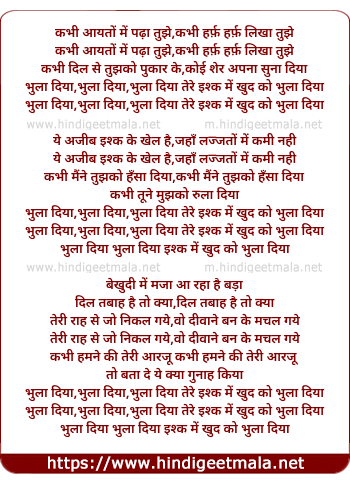 कभी आयतों में पढ़ा तुझे,कभी हर्फ़ हर्फ़ लिखा तुझे
कभी आयतों में पढ़ा तुझे,कभी हर्फ़ हर्फ़ लिखा तुझे
कभी दिल से तुझको पुकार के,कोई शेर अपना सुना दिया
भुला दिया,भुला दिया,भुला दिया तेरे इश्क में खुद को भुला दिया
भुला दिया,भुला दिया,भुला दिया तेरे इश्क में खुद को भुला दिया
www.hindigeetmala.net m.hindigeetmala.net
ये अजीब इश्क के खेल है,जहाँ लज्जतों में कमी नही
ये अजीब इश्क के खेल है,जहाँ लज्जतों में कमी नही
कभी मैंने तुझको हँसा दिया,कभी मैंने तुझको हँसा दिया
कभी तूने मुझको रुला दिया
भुला दिया,भुला दिया,भुला दिया तेरे इश्क में खुद को भुला दिया
भुला दिया,भुला दिया,भुला दिया तेरे इश्क में खुद को भुला दिया
भुला दिया भुला दिया इश्क में खुद को भुला दिया
www.hindigeetmala.net m.hindigeetmala.net
बेखुदी में मजा आ रहा है बड़ा
दिल तबाह है तो क्या,दिल तबाह है तो क्या
तेरी राह से जो निकल गये,वो दीवाने बन के मचल गये
तेरी राह से जो निकल गये,वो दीवाने बन के मचल गये
कभी हमने की तेरी आरजू कभी हमने की तेरी आरजू
तो बता दे ये क्या गुनाह किया
भुला दिया,भुला दिया,भुला दिया तेरे इश्क में खुद को भुला दिया
भुला दिया,भुला दिया,भुला दिया तेरे इश्क में खुद को भुला दिया
भुला दिया भुला दिया इश्क में खुद को भुला दिया
https://www.hindigeetmala.net